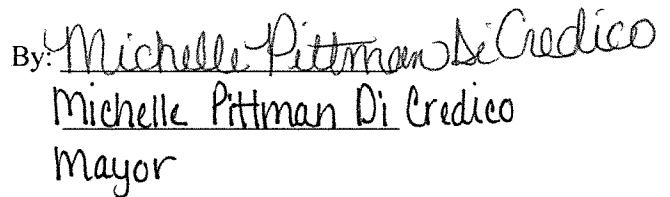 By: Michelle Pittman Di Credico
Michelle Pittman Di Credico
Mayor